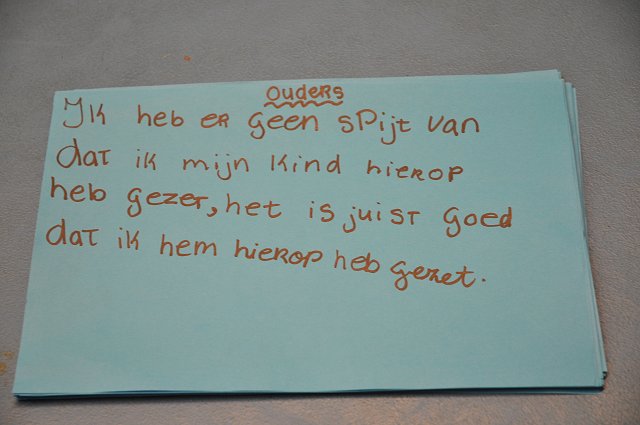 Ouders
Ik heb er geen spijt van
dat ik mijn kind hierop
heb gezet, het is juist goed
dat ik hem hierop heb gezet.